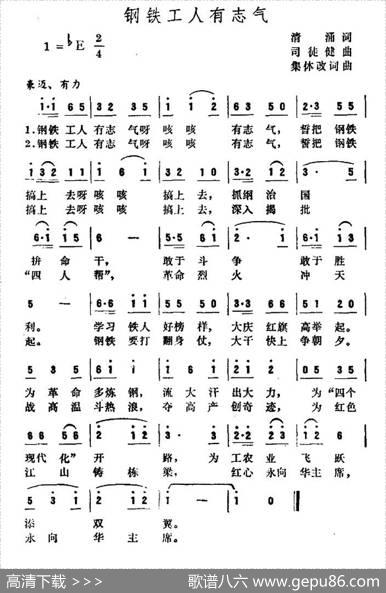 钢铁工人有志气
1=♭E 2/4
清涌词
司徒健曲
集体改词曲
豪迈、有力
1·1 6 5 | 3 2 3 5 | 1 1 2 | 3 2 3 5 | 2·3 5 5
1.钢铁 工人 有志 气呀 咳咳 有志 气， 誓把 钢铁
2.钢铁 工人 有志 气呀 咳咳 有志 气， 誓把 钢铁
搞上 去呀 咳咳 搞上 去， 抓纲 治 国
搞上 去呀 咳咳 搞上 去， 深入 揭 批
6·1 1 5 | 6 - | 5·5 6 1 | 2· 1 | 6·1 1 3
拚 命 干， 敢于 斗 争 敢于 胜
“四 人 帮”， 革命 烈 火 冲 天
5 - | 6·6 1 1 | 5·1 6 5 | 2 0 5 0 | 3·3 6 6
利。 学习 铁人 好榜 样， 大庆 红旗 高举 起。
起。 钢铁 要打 翻身 仗， 大干 快上 争朝 夕。
为 革命 多炼 钢， 流大 汗 出大 力， 为 “四个
战 高温 斗热 浪， 夺高 产 创奇 迹， 为 红色
现代 化” 开 路， 为 工农 业 飞跃
江 山 铸 栋 梁， 红心 永向 华主 席，
添 双 翼。
永 向 华 主 席。
高清下载 >>>> 歌谱八六 www.gepu86.com